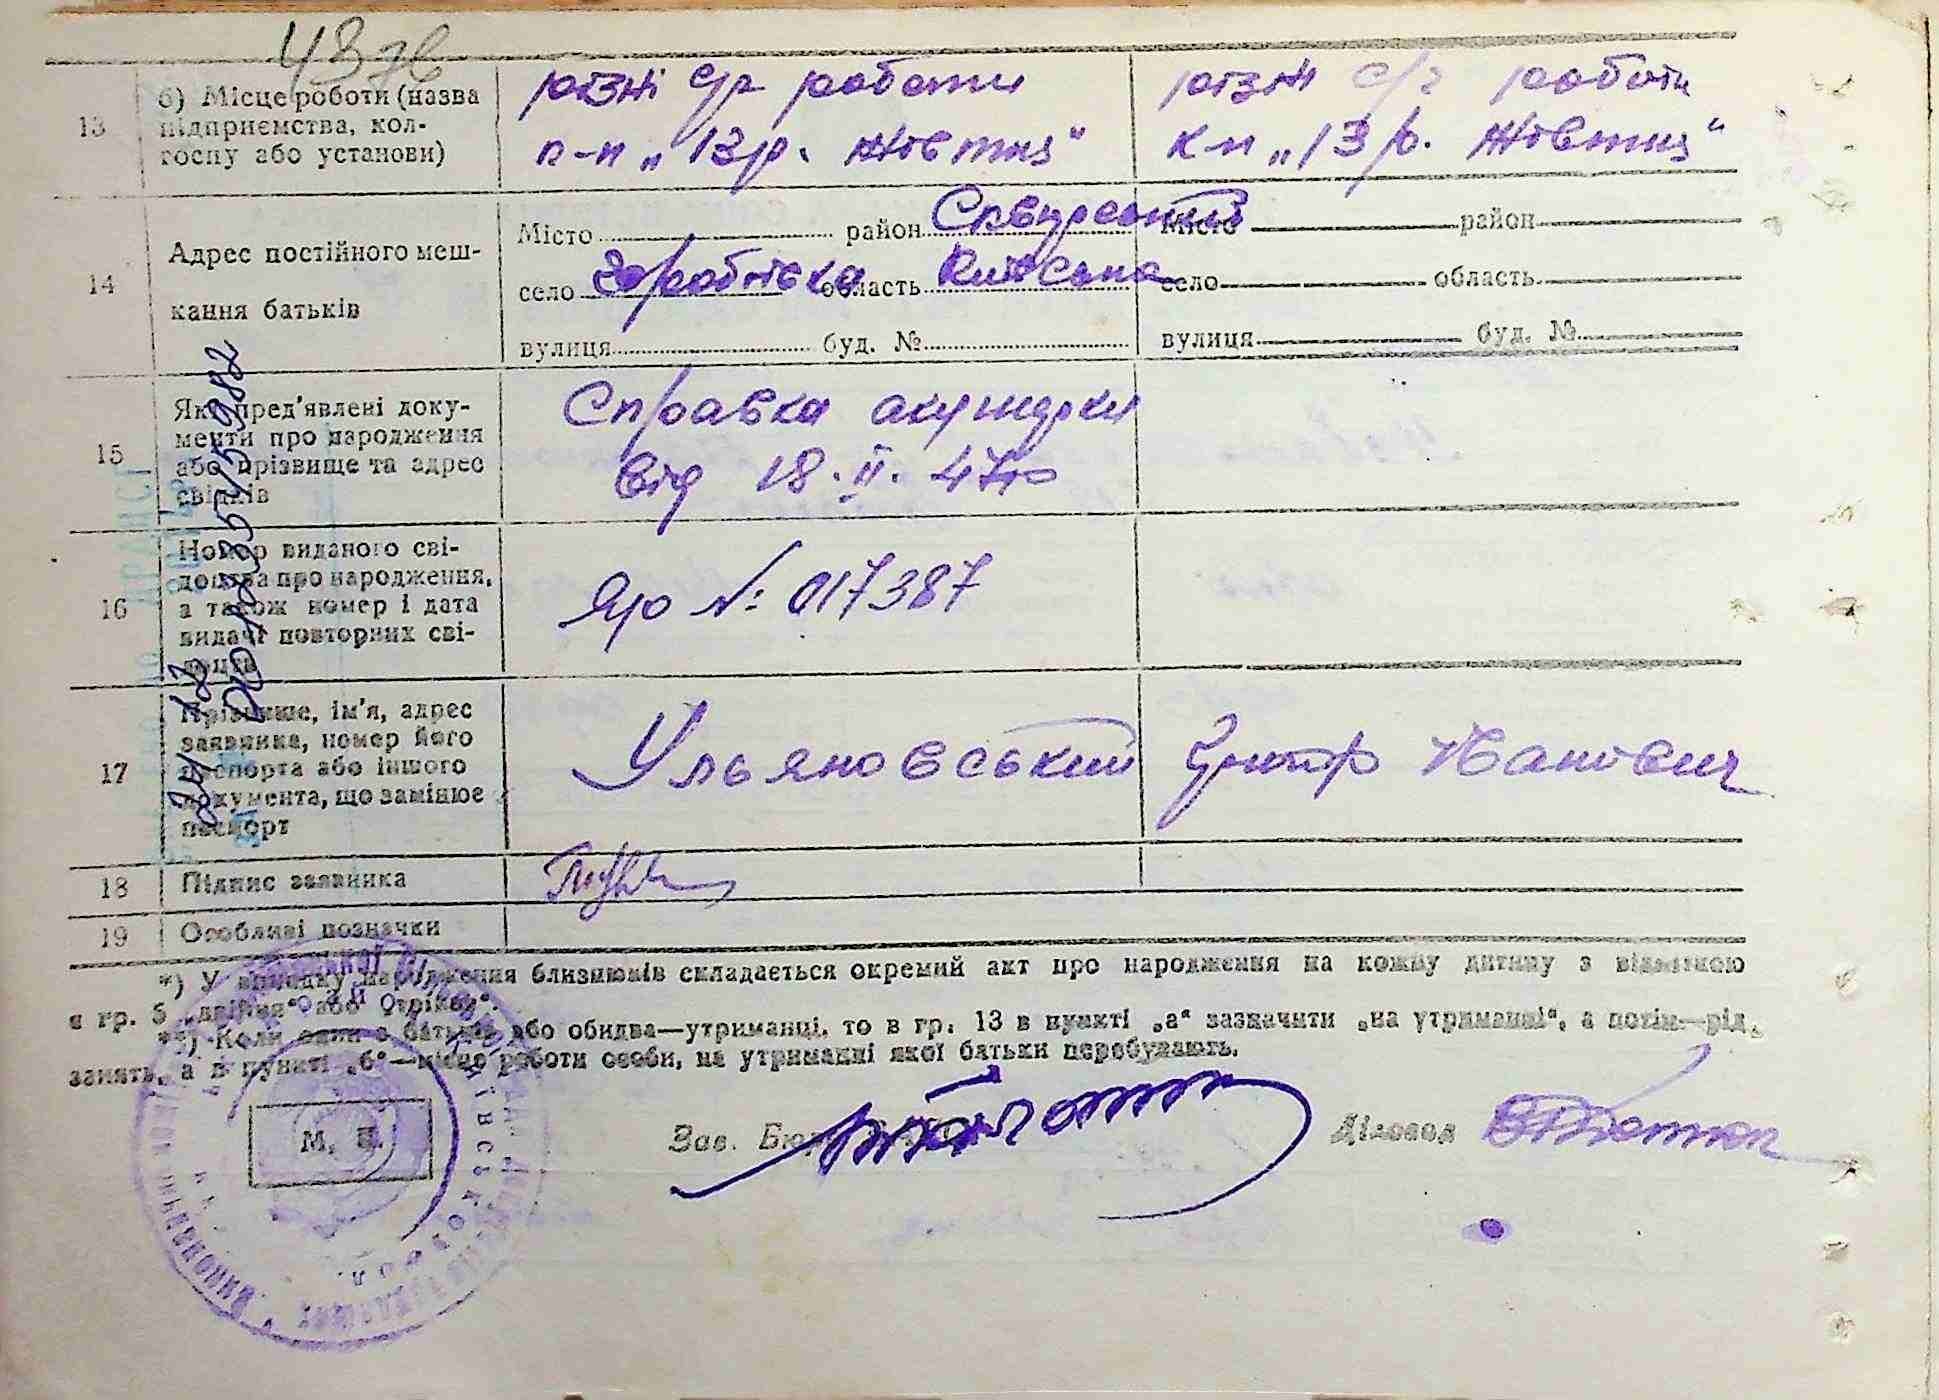 13
б) Місце роботи (назва
підприємства, кол-
госпу або установи)
різні с/г роботи
к-п „13 р. Жовтня"
різні с/г роботи
к-п „13 р. Жовтня"
14
Адрес постійного меш-
кання батьків
Місто район Сквирський
село область Київська
вулиця буд. №
Місто район
село область
вулиця буд. №
15
Які пред'явлені доку-
менти про народження
або прізвище та адрес
свідків
Справка акушерки
від 18.II.47р
16
Номер виданого сві-
доцтва про народження,
а також номер і дата
видачі повторних сві-
доцтв
№ 017387
17
Прізвище, ім'я, адрес
заявника, номер його
паспорта або іншого
документа, що замінює
паспорт
Ульяновський Дмитро Іванович
18
Підпис заявника
19
Особливі позначки
*) У випадку народження близнюків складається окремий акт про народження на кожну дитину з відміткою
в гр. 5 „двійня" або „трійня".
**) Коли один з батьків або обидва—утриманці, то в гр. 13 в пункті „а" зазначити „на утриманні", а потім—рід
занять, а в пункті „б"—місце роботи особи, на утриманні якої батьки перебувають.
М. П.
Зав. Бюро
Діловод